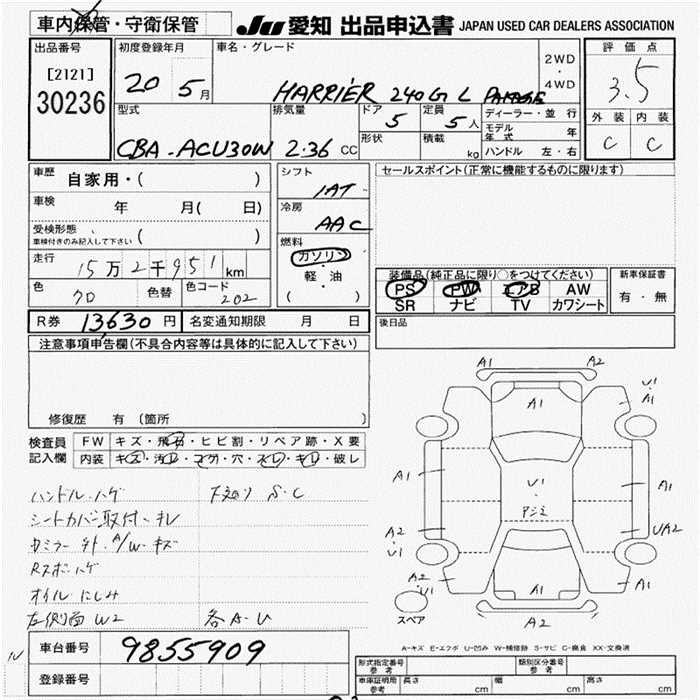 車内保管・守衛保管
JU 愛知 出品申込書 JAPAN USED CAR DEALERS ASSOCIATION
出品番号
[2121]
30236
初度登録年月
20 5月
車名・グレード
HARRIER 240G L PACKAGE
2WD
・
4WD
評価点
3.5
外装 内装
C C
型式
CBA-ACU30W
排気量
2.36 CC
ドア
5
定員
5人
形状
積載
kg
ディーラー・並行
モデル年式 年
ハンドル 左・右
車歴
自家用・( )
車検 年 月( 日)
受検形態
車検付きのみ記入して下さい ( )
走行
15万2千951km
色
クロ
色替
色コード
202
シフト
IAT
冷房
AAC
燃料
ガソリン
・
軽・油
( )
セールスポイント(正常に機能するものに限ります)
装備品(純正品に限り○をつけてください)
PS PW エアB AW
SR ナビ TV カワシート
新車保証書
有・無
R券 13630円 名変通知期限 月 日
後日品
注意事項申告欄(不具合内容等は具体的に記入して下さい)
修復歴 有〔箇所 〕
検査員
記入欄
FW キズ・飛石・ヒビ割・リペア跡・X要
内装 キズ・汚れ・コゲ・穴・スレ・キレ・破レ
ハンドル ハゲ 下廻り S・C
シートカバー取付・キレ
サミラー 外. A/W・キズ
Rスポハゲ
オイルにじみ
左側面W2 各A・U
A1 A2
A1
U1
・
A1
A1 A1
U1
・
アジミ
A2
・
U1
UA2
A2
・
U1
A1 A1
A2
スペア
A-キズ E-エクボ U-凹み W-補修跡 S-サビ C-腐食 XX-交換済
車台番号 9855909
登録番号
形式指定番号
参考
類別区分番号
参考
車庫証明用
参考
長さ cm 幅 cm 高さ cm